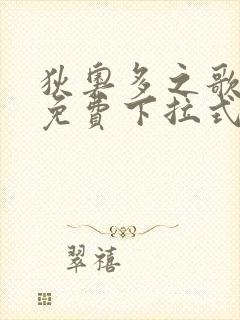 狄奥多之歌
免費下拉式
翠禧